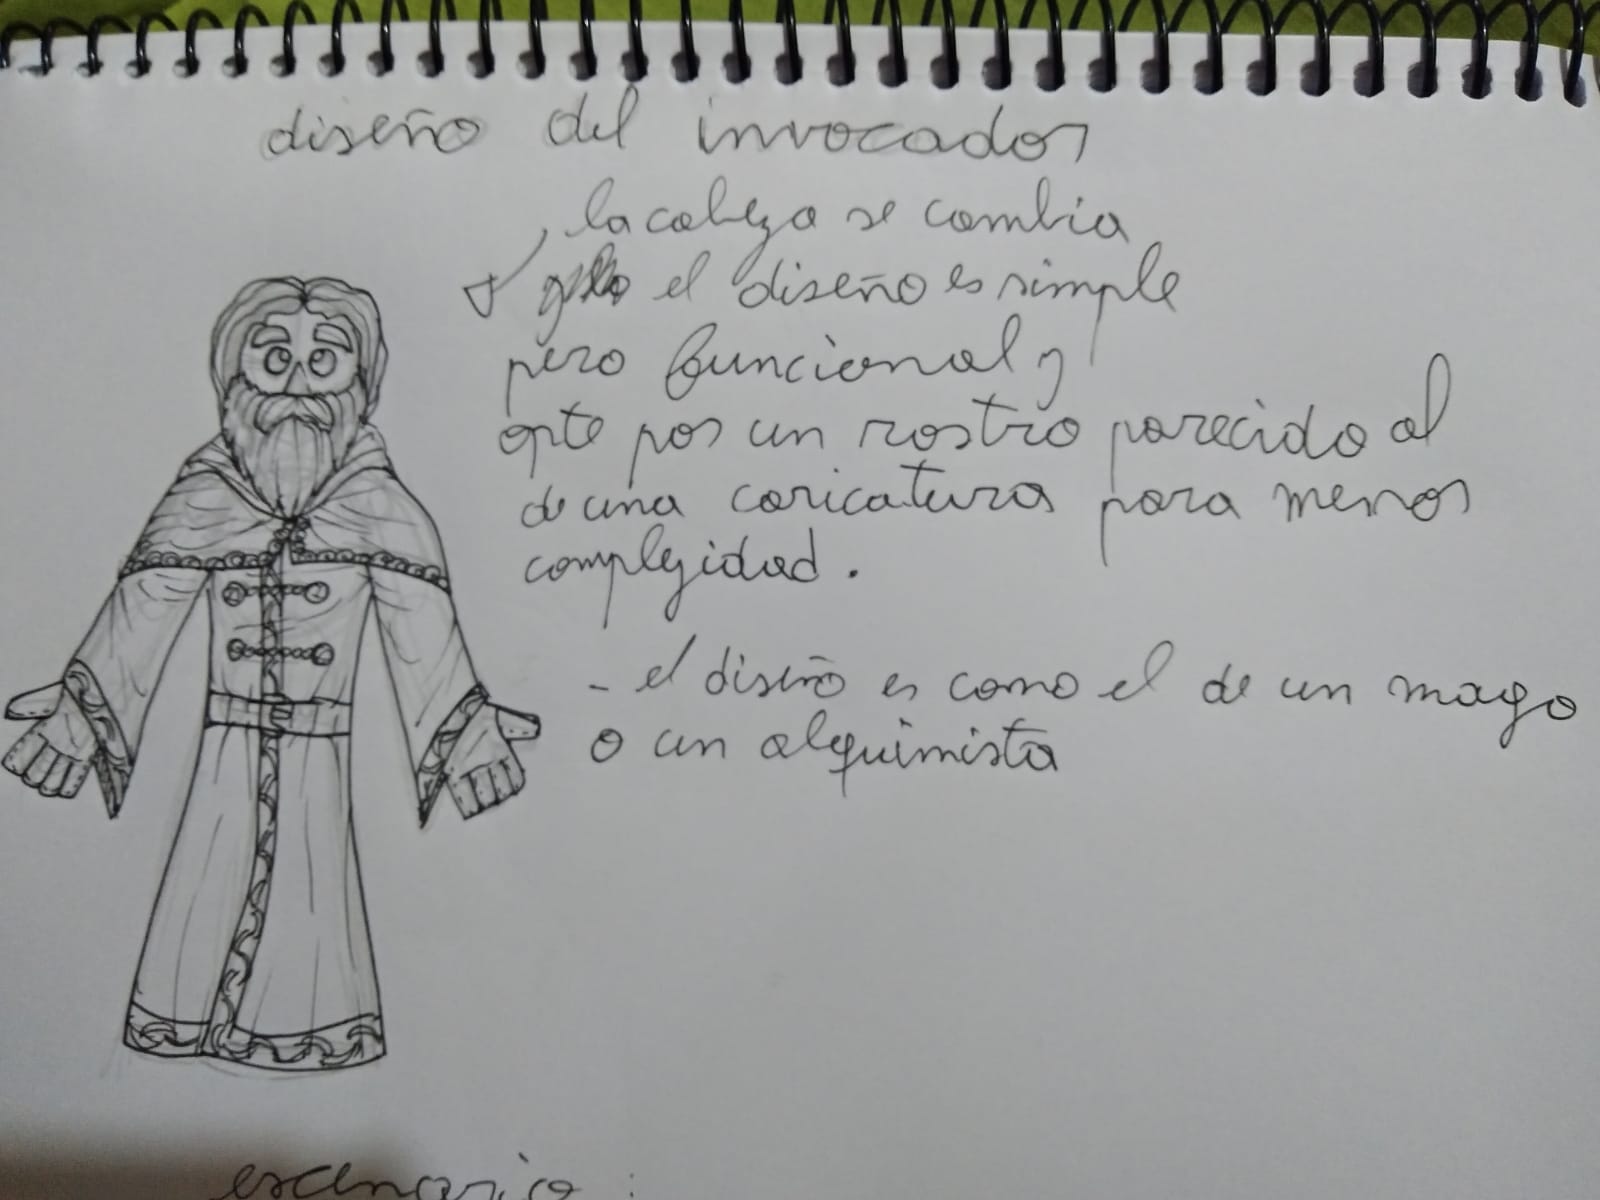 diseño del invocador
la cabeza se cambia
el diseño es simple
pero funcional y
opte por un rostro parecido al
de una caricatura para menos
complejidad.
- el diseño es como el de un mago
o un alquimista
escenario :